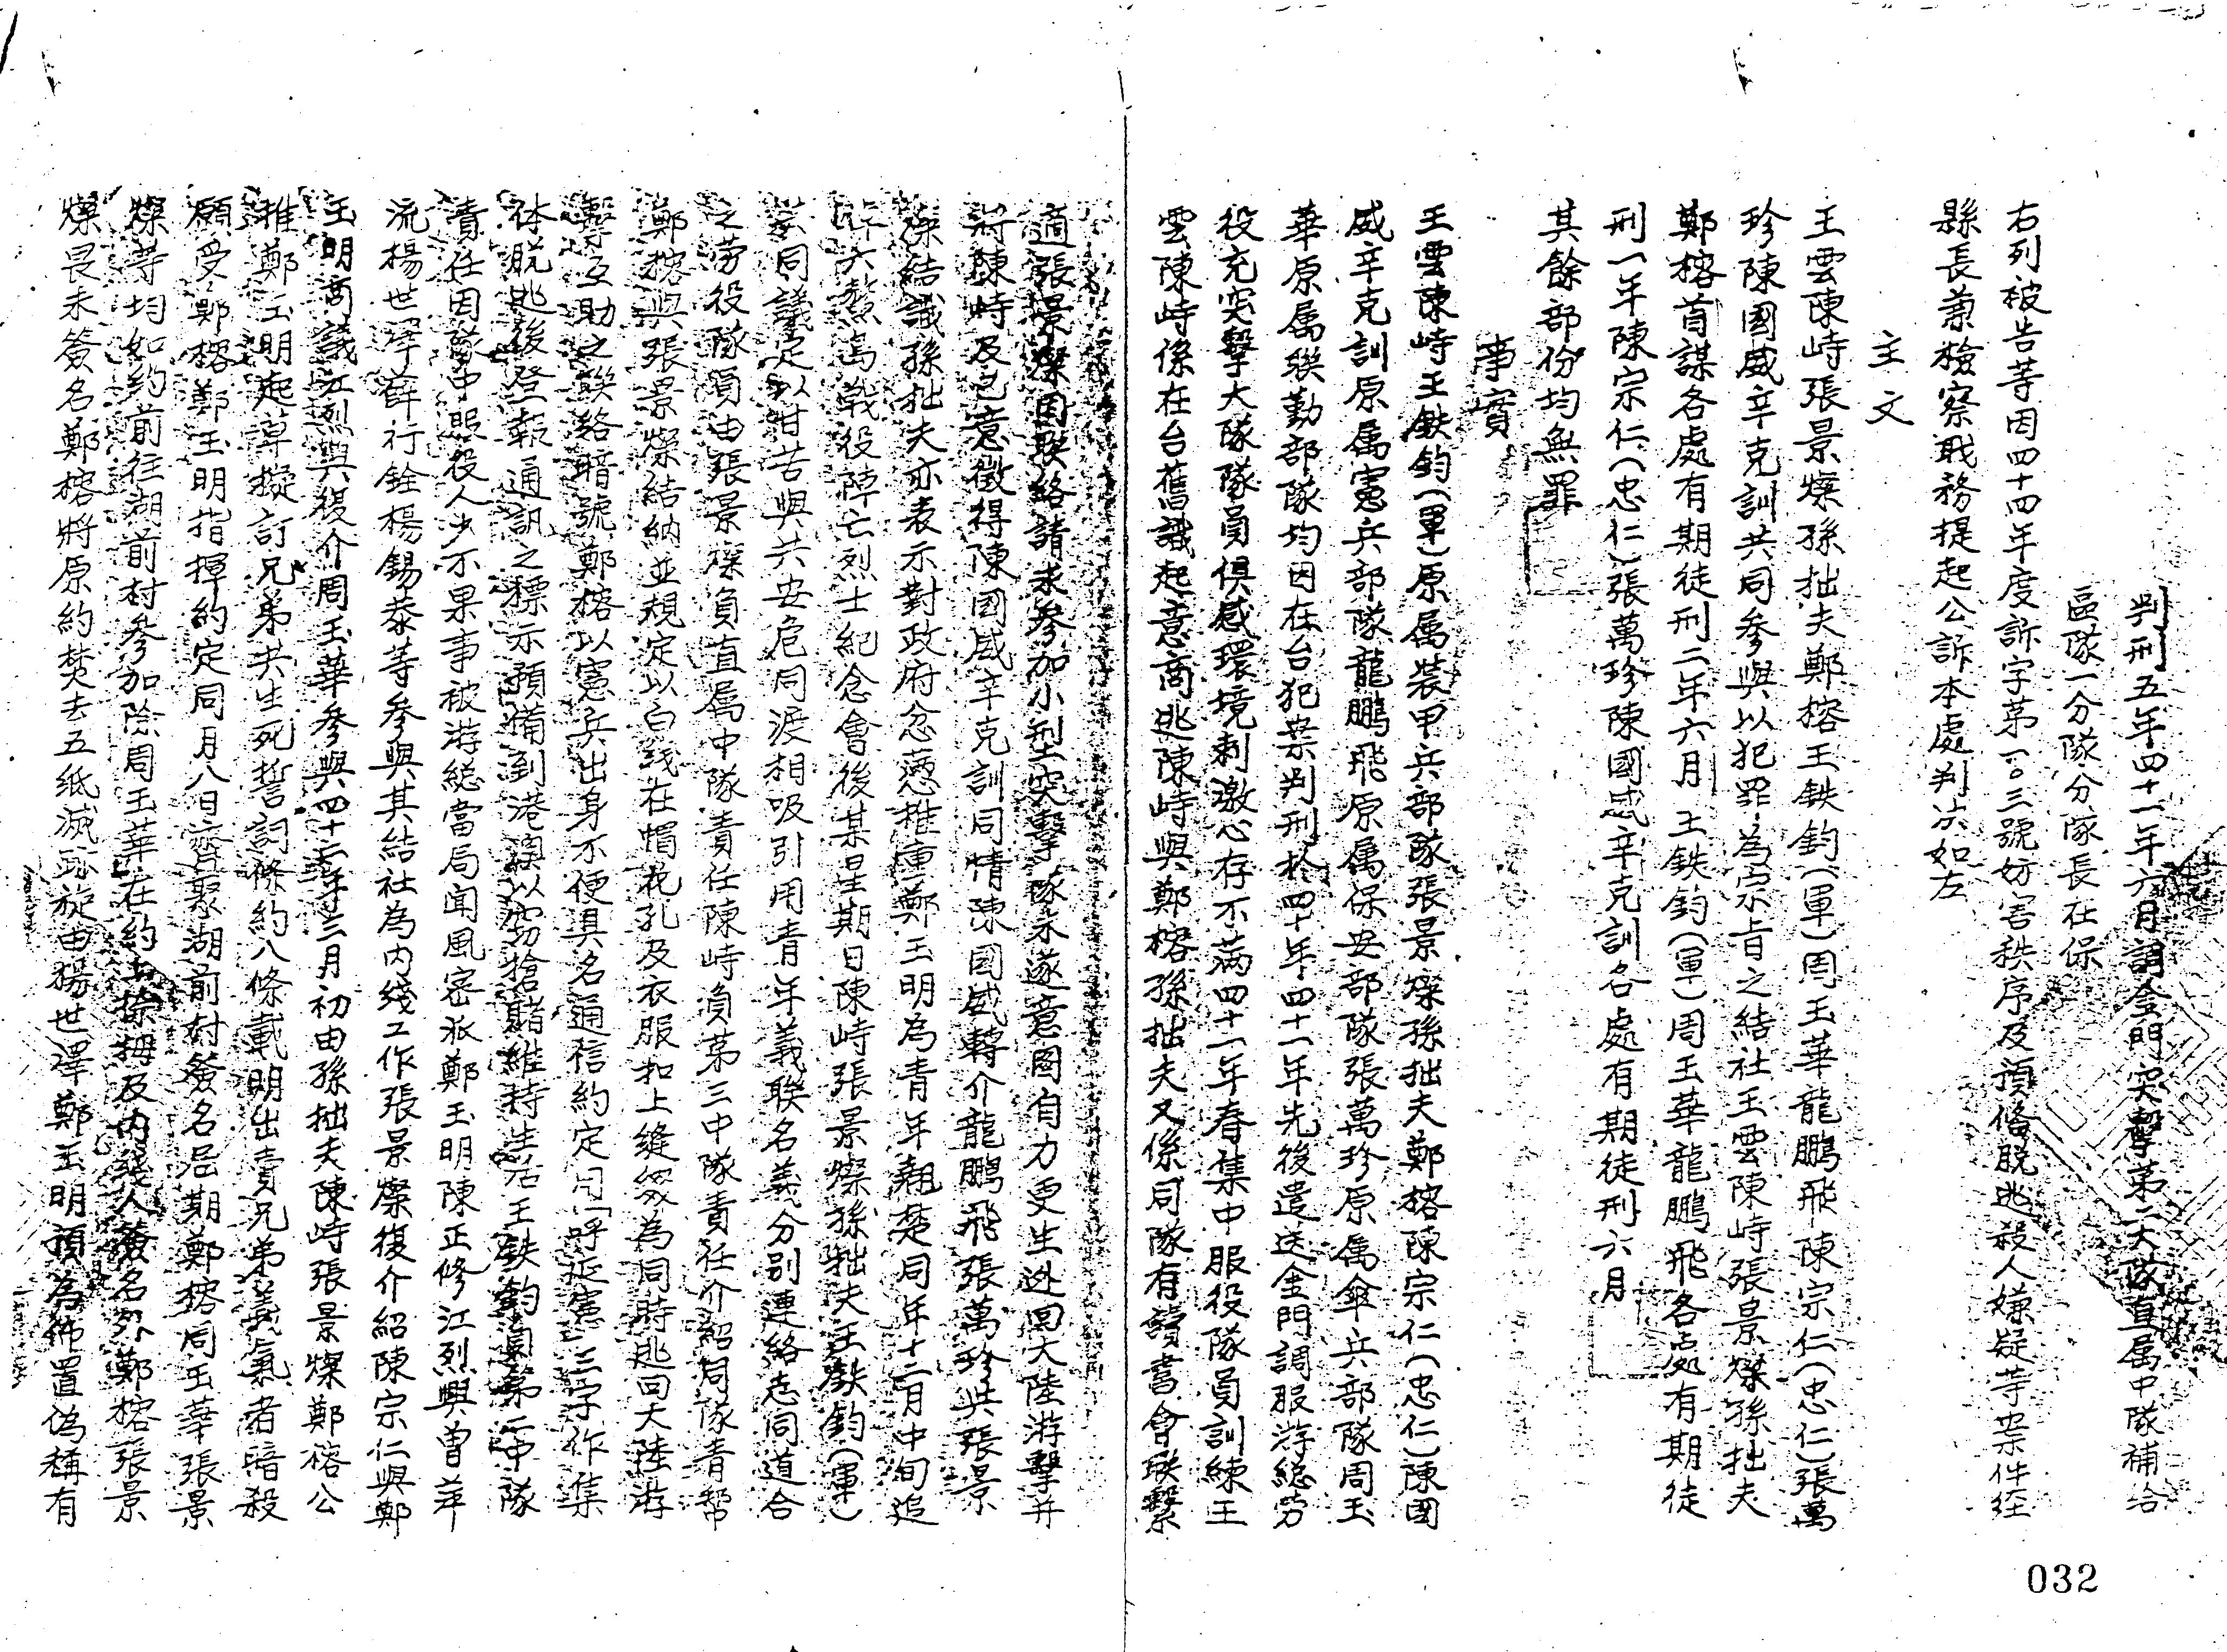 判刑五年四十一年六月調金門突擊第二大隊直屬中隊補給
區隊一分隊分隊長在保
右列被告等因四十四年度訴字第一〇三號妨害秩序及預備脫逃殺人嫌疑等案件經
縣長兼檢察職務提起公訴本處判決如左
主文
王雲陳峙張景燦孫拙夫鄭榕王鉄鈞(軍)周玉華龍鵬飛陳宗仁(忠仁)張萬
珍陳國威辛克訓共同參與以犯罪為宗旨之結社王雲陳峙張景燦孫拙夫
鄭榕首謀各處有期徒刑二年六月王鉄鈞(軍)周玉華龍鵬飛各處有期徒
刑一年陳宗仁(忠仁)張萬珍陳國威辛克訓各處有期徒刑六月
其餘部份均無罪
事實
王雲陳峙王鉄鈞(軍)原属裝甲兵部隊張景燦孫拙夫鄭榕陳宗仁(忠仁)陳國
威辛克訓原属憲兵部隊龍鵬飛原属保安部隊張萬珍原属傘兵部隊周玉
華原属联勤部隊均因在台犯案判刑於四十年四十一年先後遣送金門調服游総勞
役充突擊大隊隊員俱感環境刺激心存不满四十一年春集中服役隊員訓練王
雲陳峙係在台舊識起意商逃陳峙與鄭榕孫拙夫又係同隊有讀書會联繫
適張景燦因联絡請求參加小型突擊隊未遂意圖自力更生逃回大陸游擊并
將陳峙及己意徵得陳國威辛克訓同情陳國威轉介龍鵬飛張萬珍與張景
燦結識孫拙夫亦表示對政府忿懣推重鄭玉明為青年翹楚同年十二月中旬追
悼大嶝島戰役陣亡烈士紀念會後某星期日陳峙張景燦孫拙夫王鉄鈞(軍)
共同議定以甘苦與共安危同渡相吸引用青年義联名義分別連絡志同道合
之勞役隊員由張景燦負直属中隊責任陳峙負第三中隊責任介紹同隊青幫
鄭榕與張景燦結納並規定以白线在帽花孔及衣服扣上縫綴為同時逃回大陸游
擊互助之联絡暗號鄭榕以憲兵出身不便具名通信約定用「呼延憲」三字作集
体脱逃後登報通訊之標示預備到港澳以窃搶賭維持生活王鉄鈞負第二中隊
責任因隊中服役人少不果事被游総當局闻風密派鄭玉明陳正修江烈興曾萍
流楊世澤薛行銓楊錫泰等參與其結社為内綫工作張景燦復介紹陳宗仁與鄭
玉明商議江烈興復介周玉華參與四十二年三月初由孫拙夫陳峙張景燦鄭榕公
推鄭玉明起草擬訂兄弟共生死誓詞條約八條載明出賣兄弟義氣者暗殺
願受鄭榕鄭玉明指揮約定同月八日齊聚湖前村簽名屆期鄭榕同玉華張景
燦等均如約前往湖前村參加除周玉華在約上捺拇及内綫人簽名外鄭榕張景
燦畏未簽名鄭榕將原約焚去五紙滅跡旋由楊世澤鄭玉明預為佈置偽稱有
032